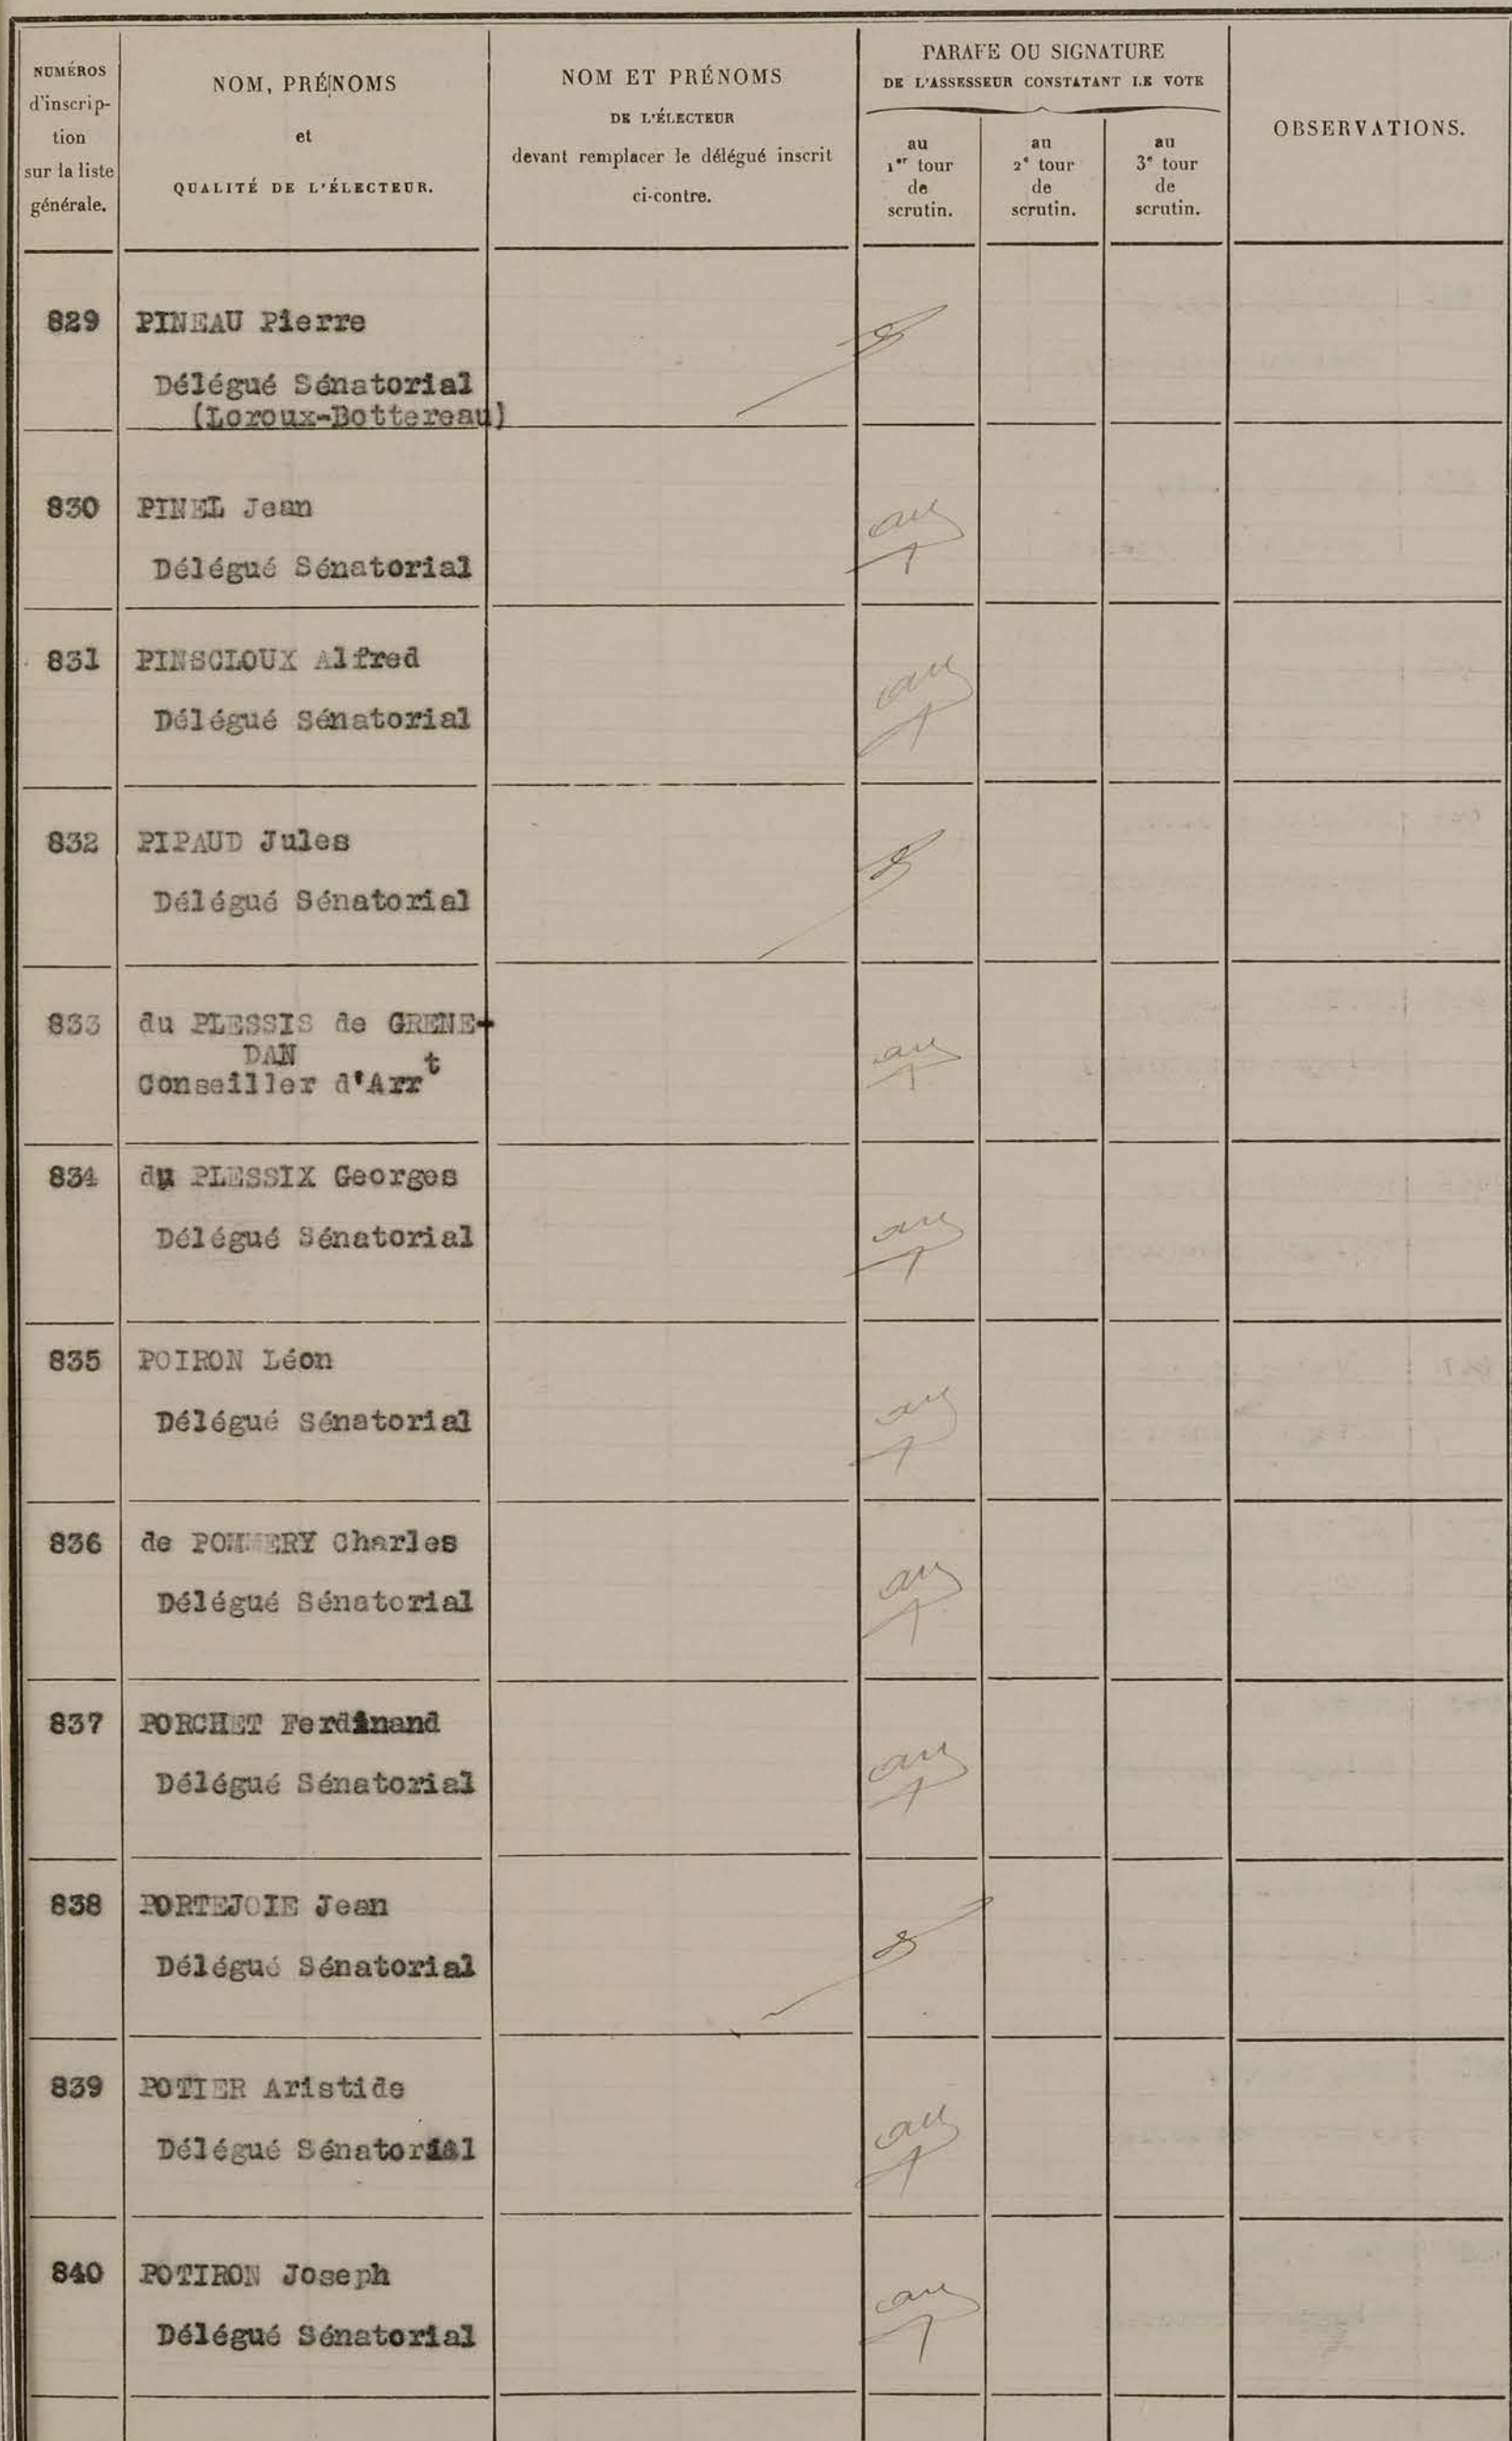 NUMÉROS
d'inscrip-
tion
sur la liste
générale.
NOM, PRÉNOMS
et
QUALITÉ DE L'ÉLECTEUR.
NOM ET PRÉNOMS
DE L'ÉLECTEUR
devant remplacer le délégué inscrit
ci-contre.
PARAFE OU SIGNATURE
DE L'ASSESSEUR CONSTATANT LE VOTE
au
1er tour
de
scrutin.
au
2e tour
de
scrutin.
au
3e tour
de
scrutin.
OBSERVATIONS.
829 PINEAU Pierre
Délégué Sénatorial
(Loroux-Bottereau)
830 PINEL Jean
Délégué Sénatorial
831 PINSCLOUX Alfred
Délégué Sénatorial
832 PIPAUD Jules
Délégué Sénatorial
833 du PLESSIS de GRENE-
DAN
Conseiller d'Arrt
834 du PLESSIX Georges
Délégué Sénatorial
835 POIRON Léon
Délégué Sénatorial
836 de POMMERY Charles
Délégué Sénatorial
837 PORCHET Ferdinand
Délégué Sénatorial
838 PORTEJOIE Jean
Délégué Sénatorial
839 POTIER Aristide
Délégué Sénatorial
840 POTIRON Joseph
Délégué Sénatorial